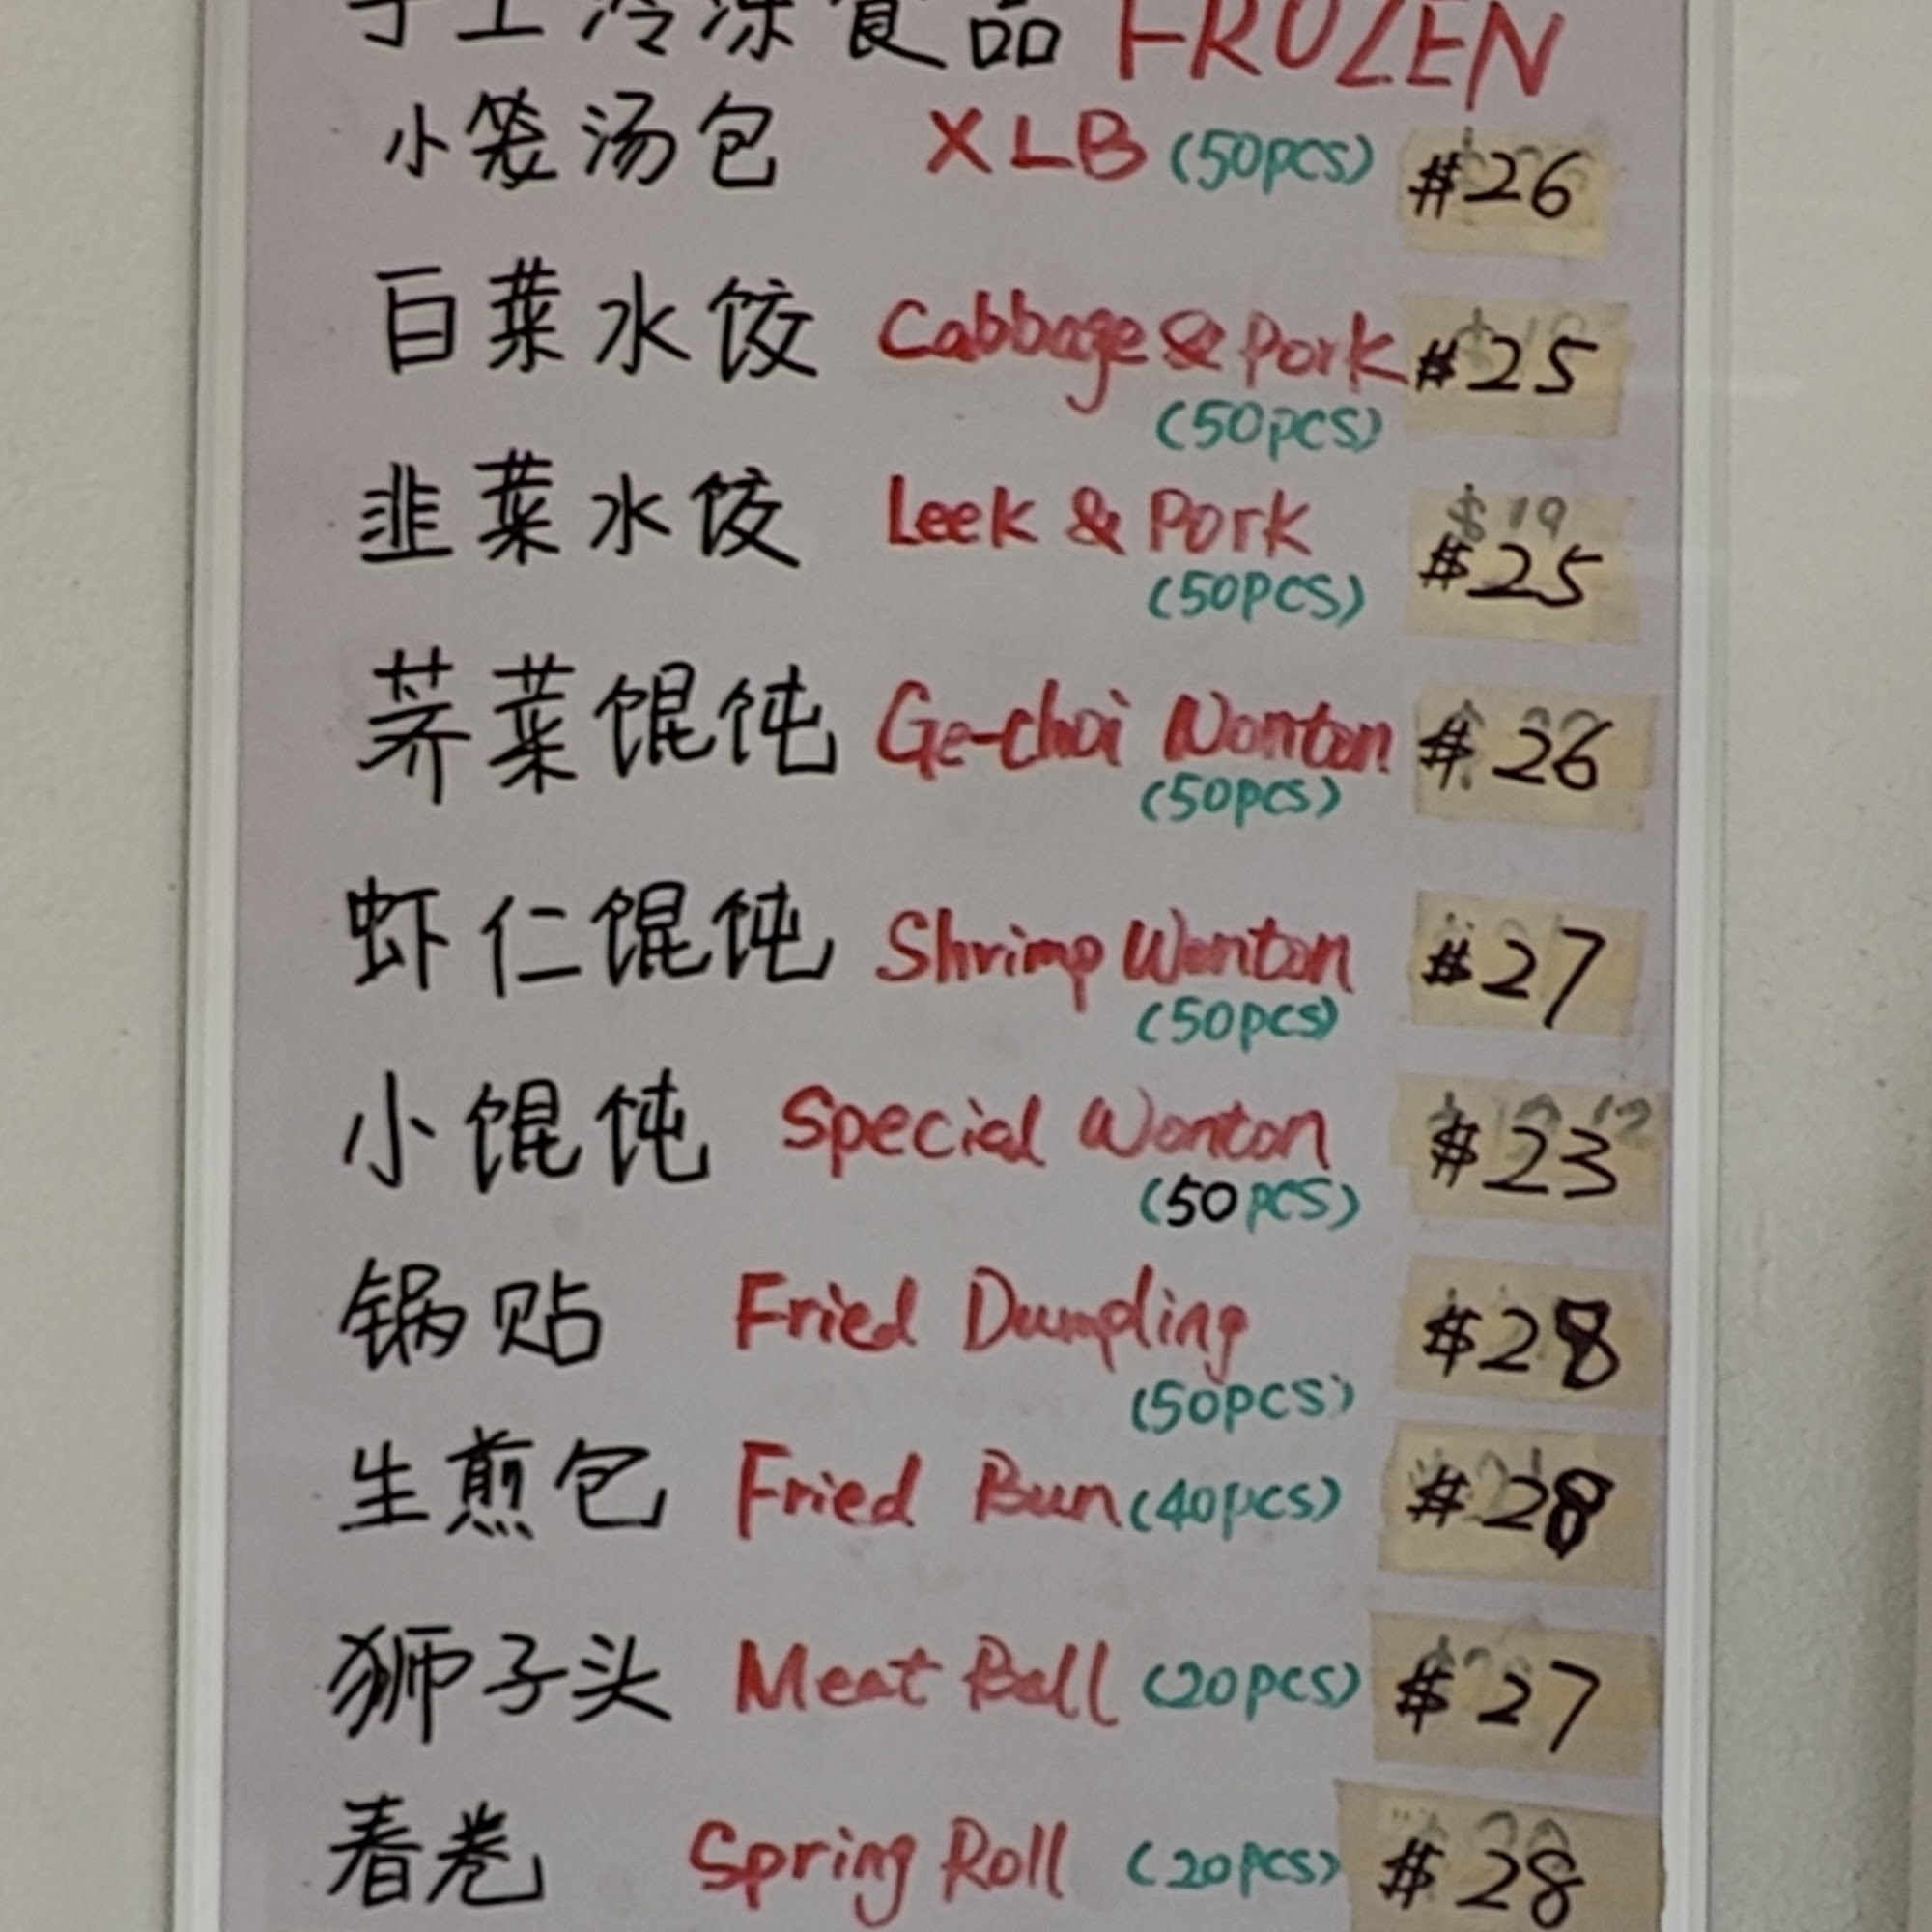 手工冷冻食品 FROZEN
小笼汤包 XLB (50pcs) $26
白菜水饺 Cabbage & Pork $25
(50pcs)
韭菜水饺 Leek & Pork $25
(50pcs)
荠菜馄饨 Ge-choi Wonton $26
(50pcs)
虾仁馄饨 Shrimp Wonton $27
(50pcs)
小馄饨 Special Wonton $23
(50pcs)
锅贴 Fried Dumpling $28
(50pcs)
生煎包 Fried Bun (40pcs) $28
狮子头 Meat Ball (20pcs) $27
春卷 Spring Roll (20pcs) $28